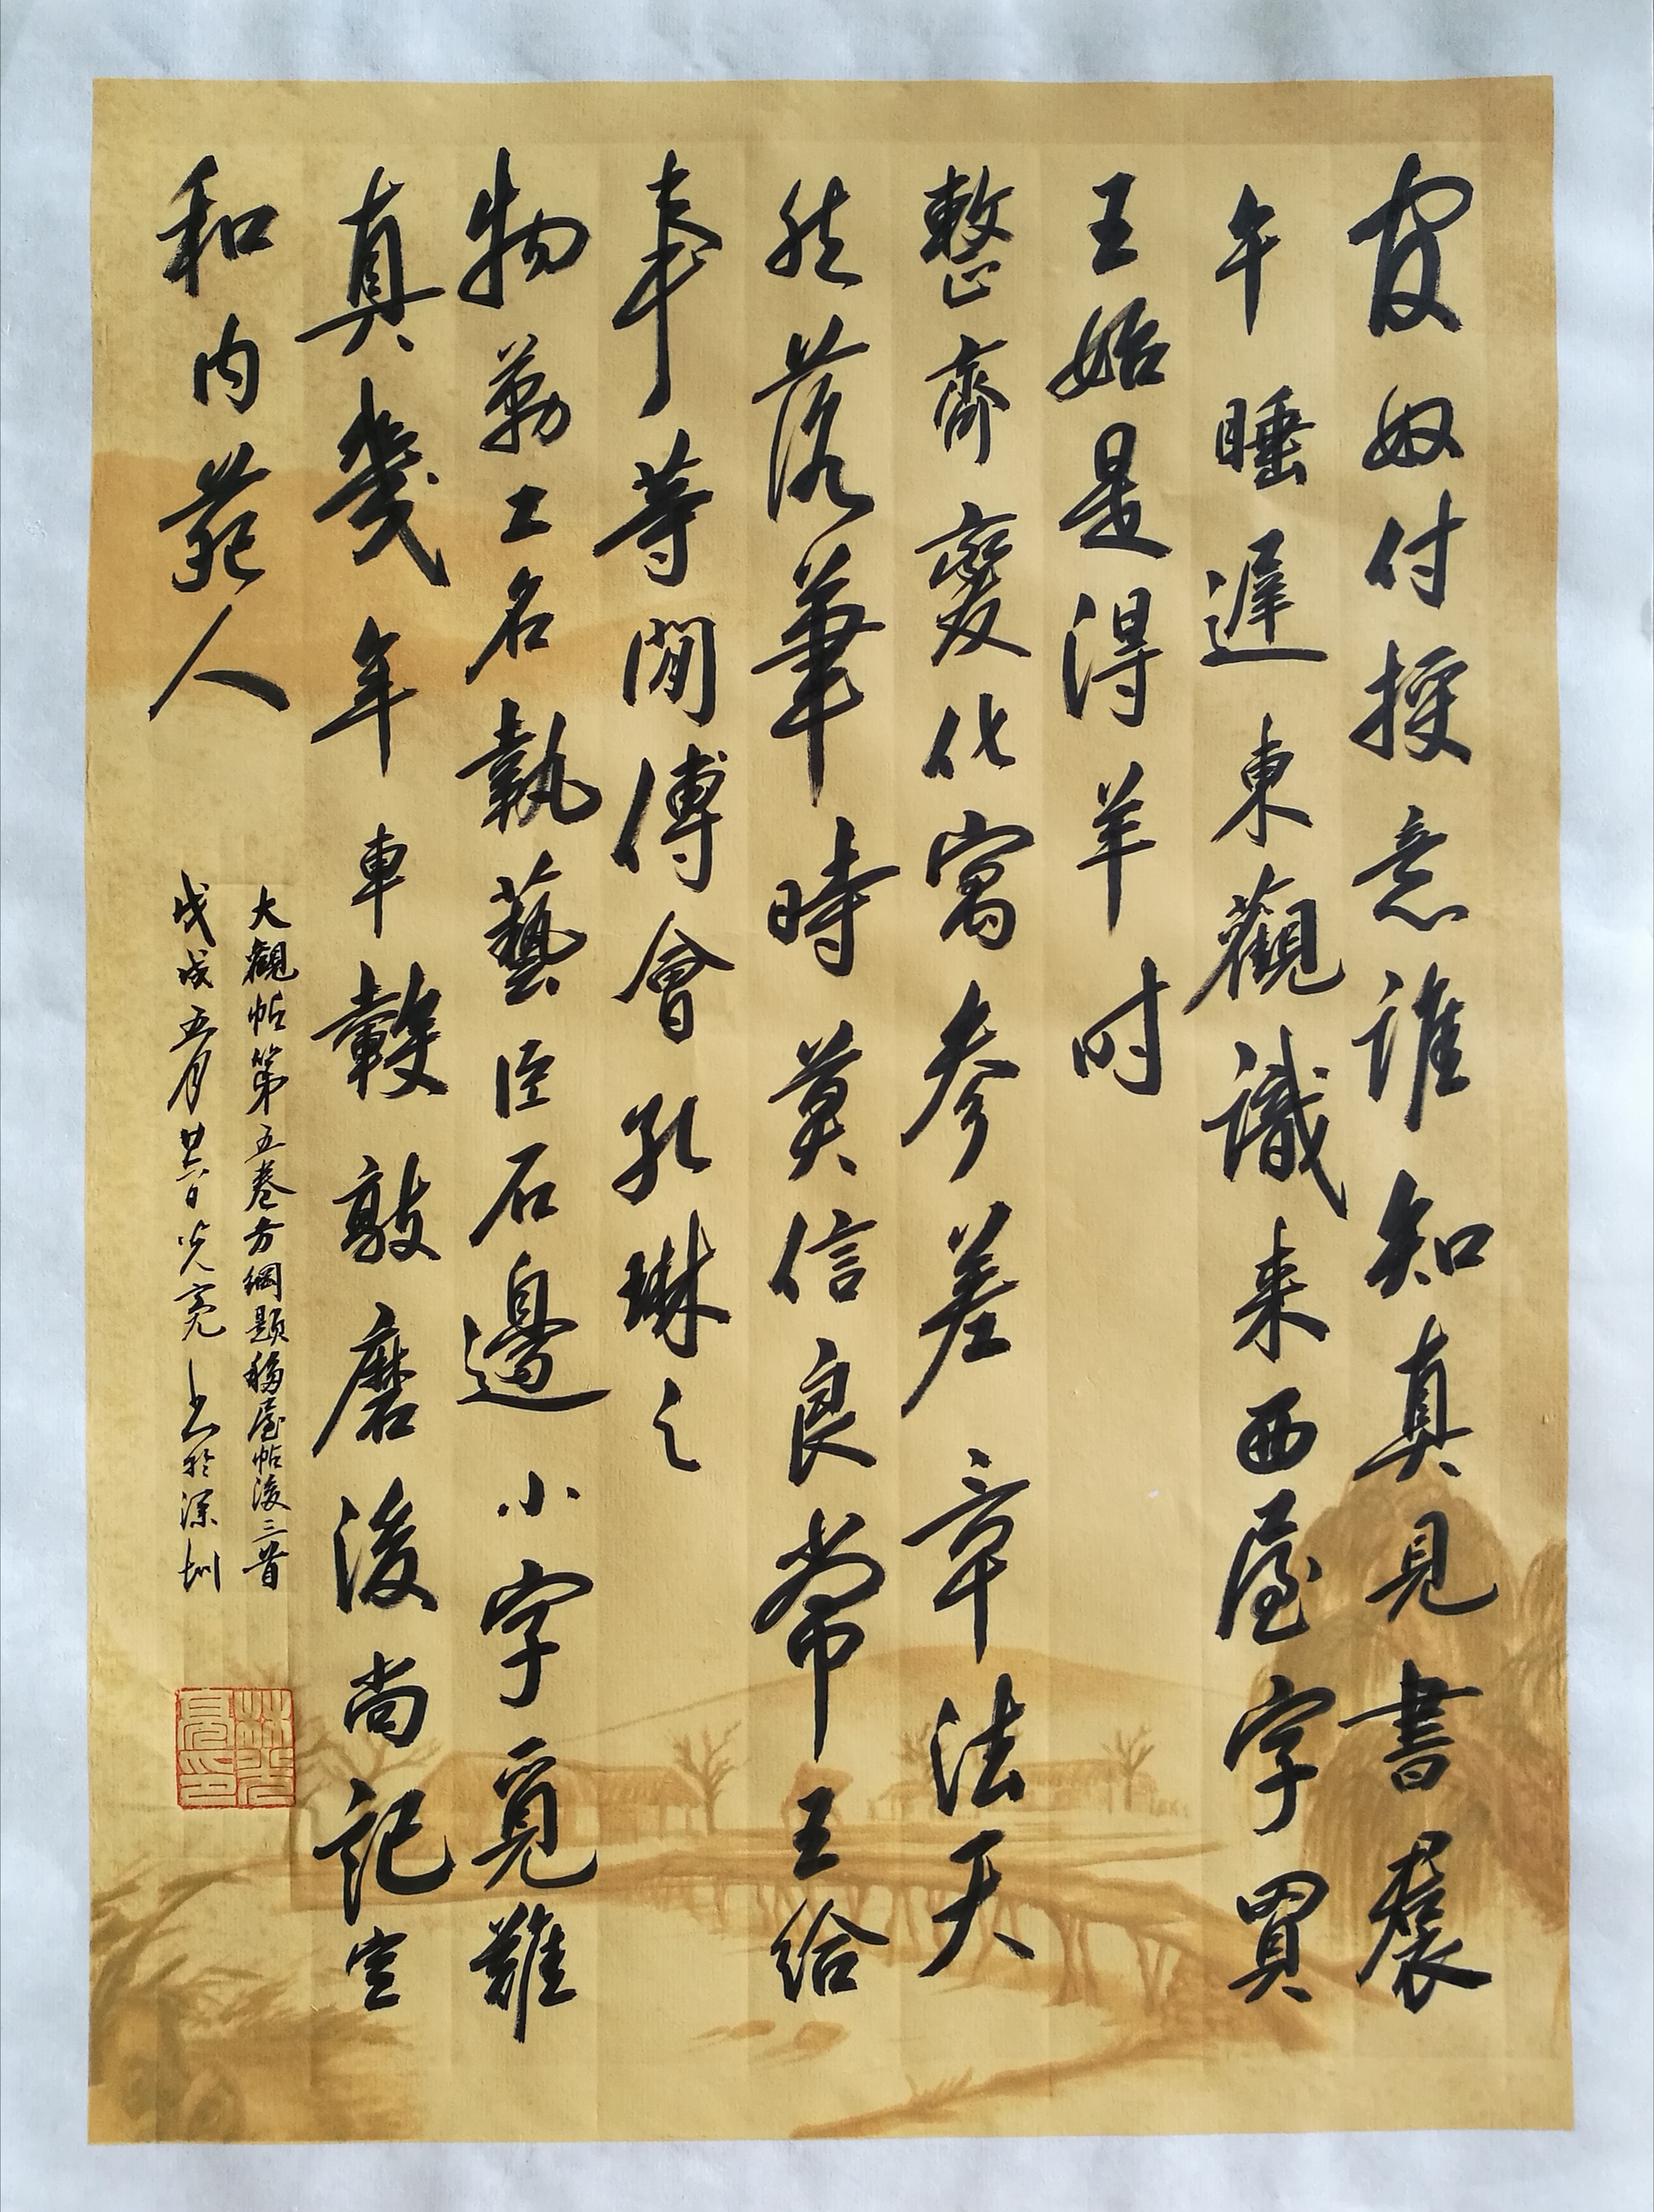 官奴付授意誰知真見書裙
午睡遲東觀識来西屋字買
王始是得羊时
整齊變化寓参差章法天
然落筆時莫信良常王給
事等閒傅會孔琳之
物勒工名執藝臣石邊小字覓難
真幾年車轂敲磨後尚記宣
和内苑人
大觀帖第五卷方綱題移屋帖後三首
戊戌五月廿八日光亮书於深圳
林光亮印